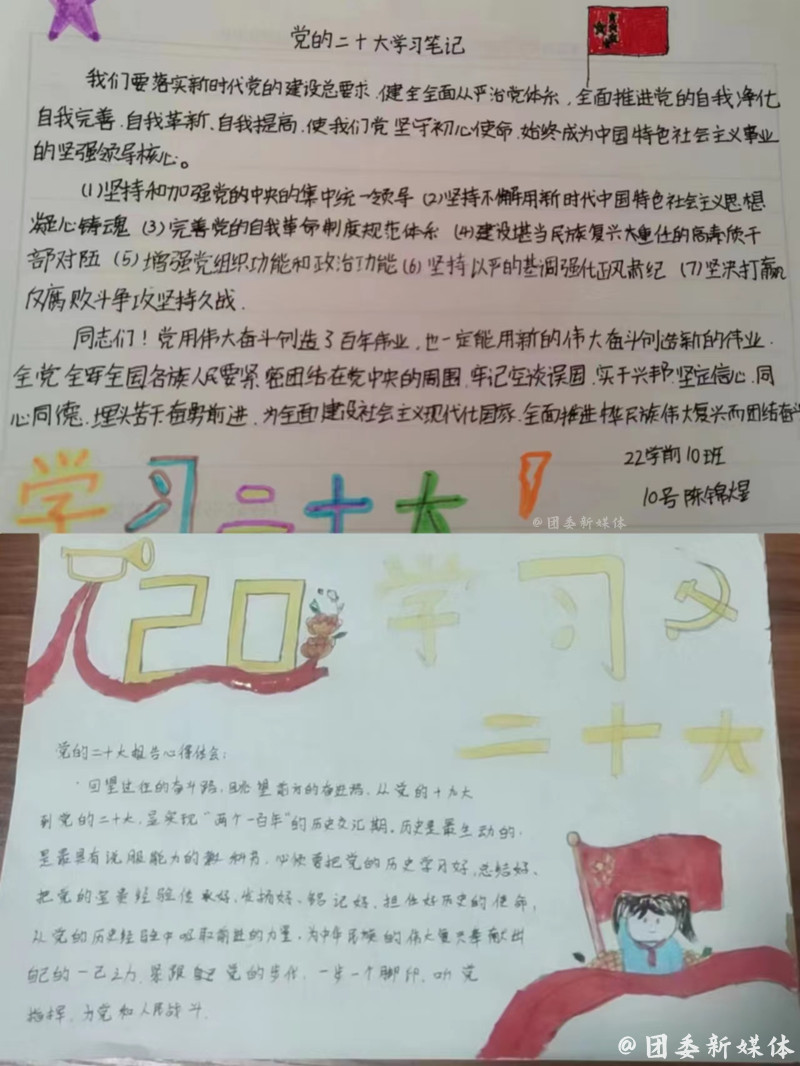 党的二十大学习笔记
我们要落实新时代党的建设总要求,健全全面从严治党体系,全面推进党的自我净化
自我完善、自我革新、自我提高,使我们党坚守初心使命,始终成为中国特色社会主义事业
的坚强领导核心。
(1)坚持和加强党的中央的集中统一领导 (2)坚持不懈用新时代中国特色社会主义思想
凝心铸魂 (3)完善党的自我革命制度规范体系 (4)建设堪当民族复兴大重任的高素质干
部对伍 (5)增强党组织功能和政治功能 (6)坚持以严的基调强化正风肃纪 (7)坚决打赢
反腐败斗争攻坚持久战.
同志们!党用伟大奋斗创造了百年伟业,也一定能用新的伟大奋斗创造新的伟业.
全党全军全国各族人民要紧密团结在党中央的周围,牢记空谈误国,实干兴邦,坚定信心,同
心同德、埋头苦干奋勇前进,为全面建设社会主义现代化国家、全面推进中华民族伟大复兴而团结奋斗
22学前10班
10号 陈锦煜
学习二十大!
@团委新媒体
20 学习
二十大
党的二十大报告心得体会:
回望过往的奋斗路,眺望前方的奋进路,从党的十九大
到党的二十大,是实现“两个一百年”的历史交汇期。历史是最生动的,
是最具有说服能力的教科书,必须要把党的历史学习好,总结好、
把党的宝贵经验传承好、发扬好、铭记好,担任好历史的使命,
从党的历史经验中吸取前进的力量,为中华民族的伟大复兴奉献出
自己的一己之力,紧跟 党的步伐,一步一个脚印,听党
指挥,为党和人民战斗.
@团委新媒体